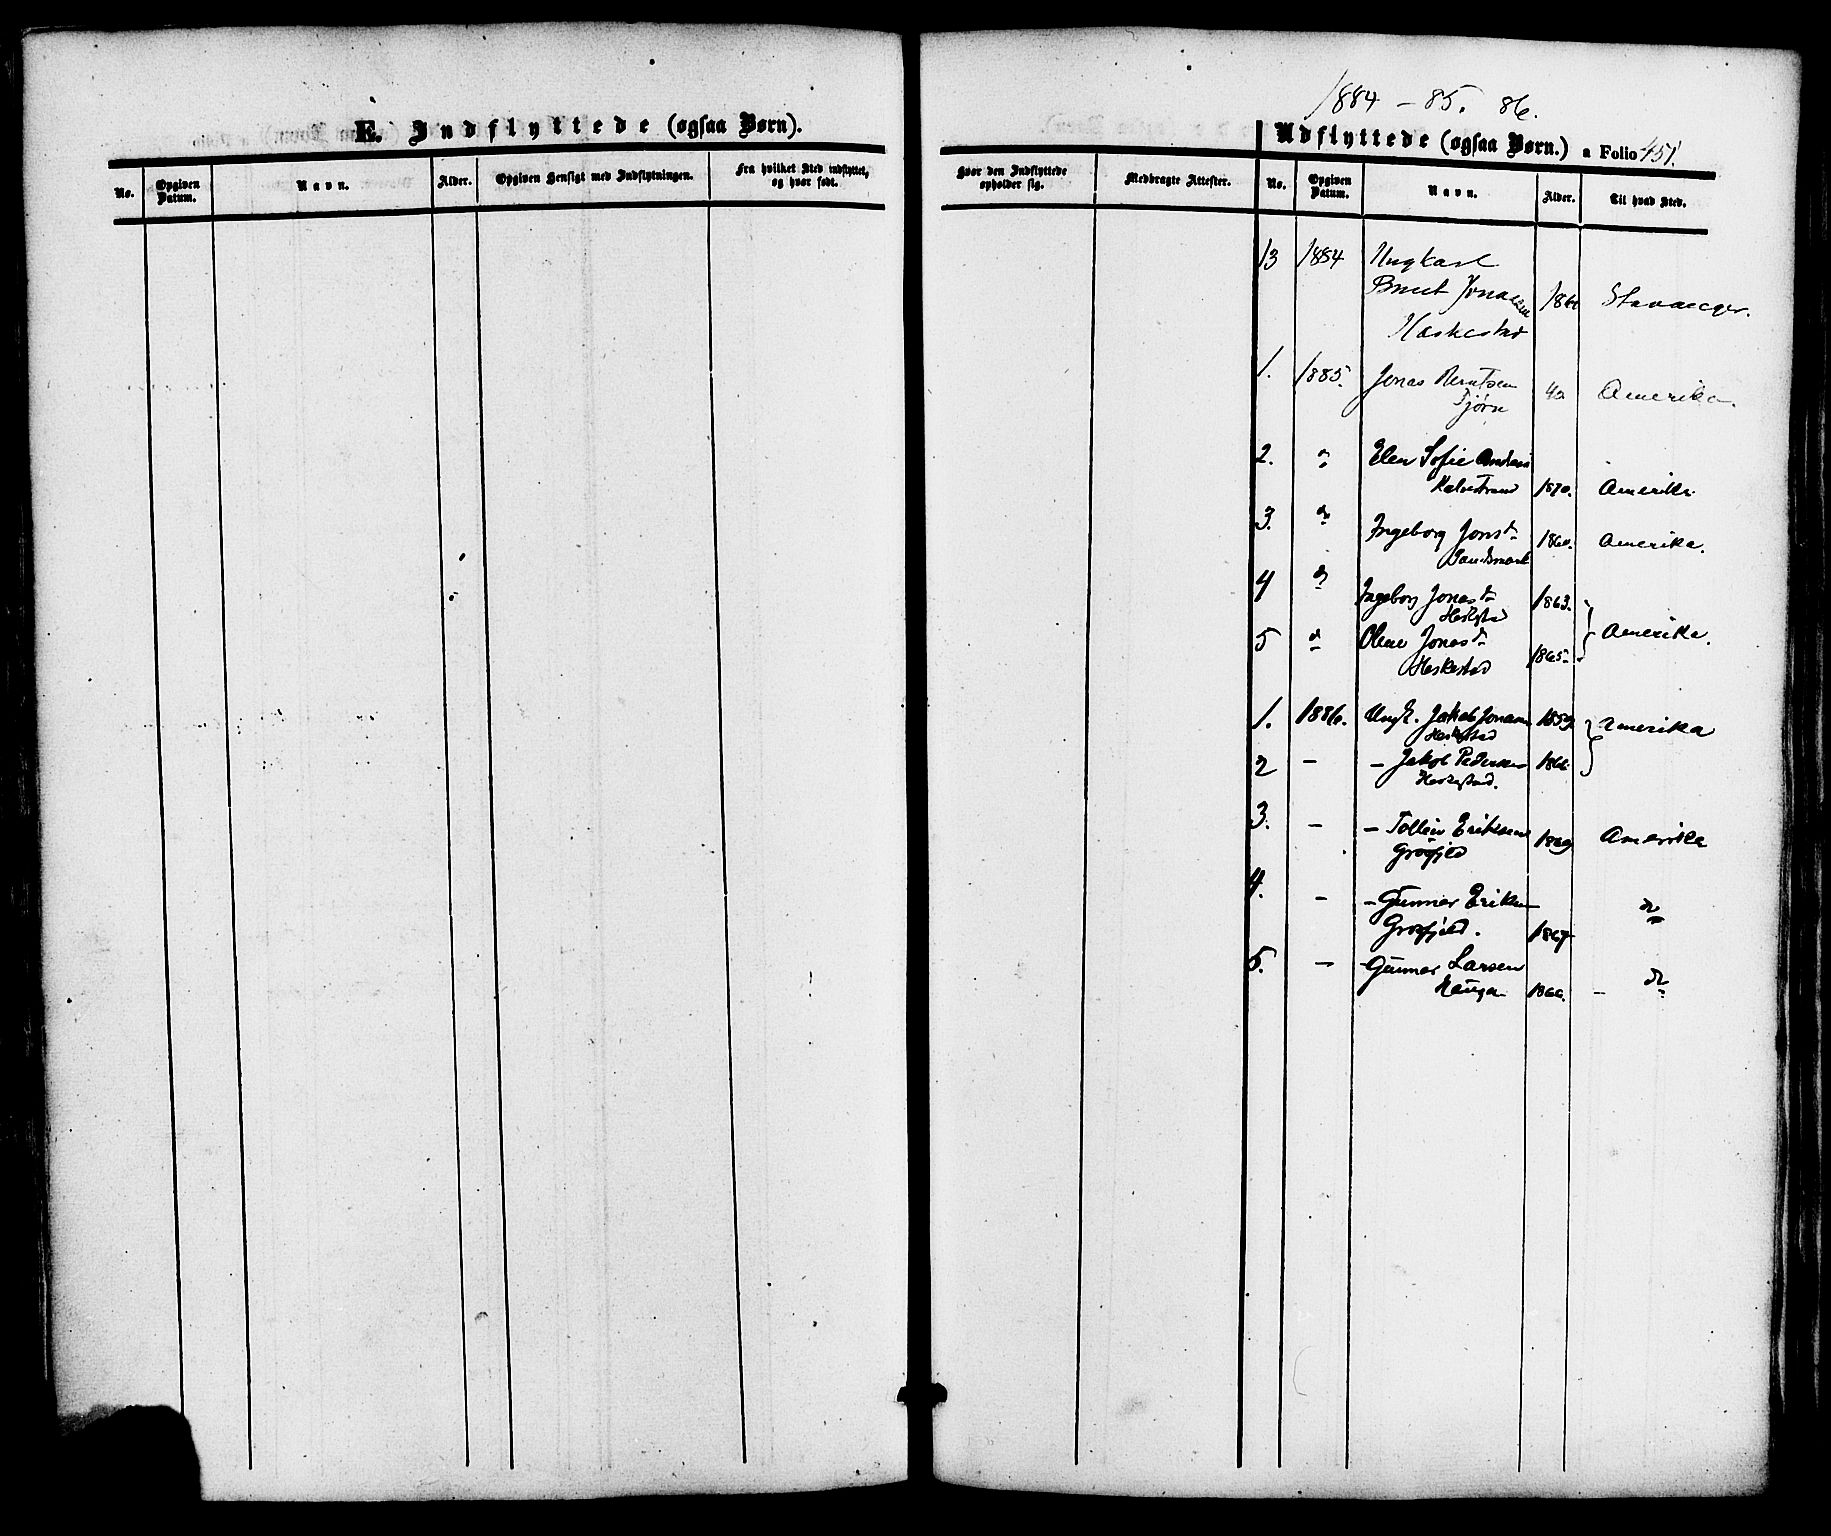 E. Indflyttede (ogsaa Børn).
No.
Opgiven Datum.
Navn.
Alder.
Opgiven Hensigt med Indflytningen.
Fra hvilket Sted indflyttet, og hvor født.
1884 - 85. 86.
Udflyttede (ogsaa Børn.) a Folio 451.
Hvor den Indflyttede opholder sig.
Medbragte Attester.
No.
Opgiven Datum.
Navn.
Alder.
Til hvad Sted.
13 1884 Ungkarl
Jonassen Stavanger.
Heskestad
1. 1885. Jonas Berntsen
Tjørn 40 Amerika.
2. do Elen Sofie
1870. Amerika
3. do Ingeborg Jonsd. 1860. Amerika.
4 do Ingeborg Jonasd. 1863.
Heskestad
Amerika.
5 do Olene Jonasd.
Heskestad 1865.
1. 1886. Ungk. Jakob Jonassen 1859 Amerika
Heskestad
2 - - Jakob Pedersen
Heskestad.
3. - - Tollein Eriksen 1869 Amerika
Grøsfjeld
4. - - Gunnar Eriksen do
Grøsfjeld. 1867
5. - - Gunnar Larsen do
Hauga 1866. -